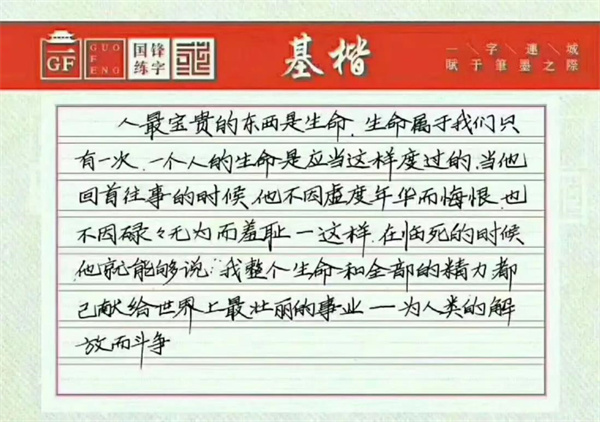 GF
GUO
FENG
国锋
练字
基楷
一＼字＼連＼城
賦于筆墨之際
人最宝贵的东西是生命，生命属于我们只
有一次，一个人的生命是应当这样度过的，当他
回首往事的时候，他不因虚度年华而悔恨，也
不因碌々无为而羞耻一这样，在临死的时候
他就能够说：我整个生命和全部的精力都
已献给世界上最壮丽的事业一为人类的解
放而斗争